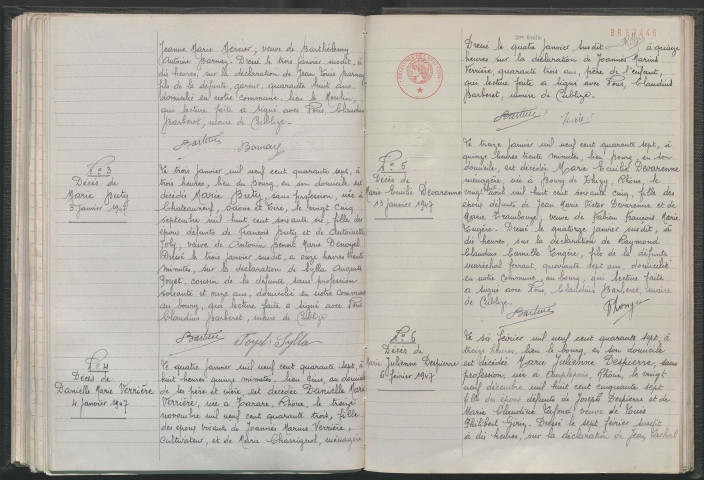 Jeanne Marie Mercier, veuve de Barthélemy
Antoine Barnay. Dressé le trois janvier susdit, à
dix heures, sur la déclaration de Jean Louis Barnay
fils de la défunte, quarante huit ans,
domicilié en notre commune, lieu le Moulin,
qui lecture faite a signé avec Nous, Claudius
Barberet, maire de Cublize.
N° 3
Décès de
Marie Buty
3 janvier 1947
Le trois janvier mil neuf cent quarante sept, à
trois heures, lieu du Bourg, en son domicile est
décédée Marie Buty sans profession, née à
Chateauneuf, Saône et Loire, le vingt cinq
septembre mil huit cent soixante six, fille des
époux défunts de François Buty et de Antoinette
Joly, veuve de Antonin Benoit Marie Denoyel
Dressé le trois janvier susdit, à onze heures trente
minutes, sur la déclaration de Sylla Auguste
Goyet, cousin de la défunte, sans profession
soixante et onze ans, domicilié en notre commune
au bourg, qui lecture faite a signé avec Nous
Claudius Barberet, maire de Cublize
N° 4
Décès de
Danielle Marie Verrière
4 janvier 1947
Le quatre janvier mil neuf cent quarante sept, à
huit heures quinze minutes, lieu, au domicile
de ses père et mère, est décédée Danielle Marie
Verrière, née à Tarare, Rhône, le treize
novembre mil neuf cent quarante trois, fille
des époux vivants de Joannès Marius Verrière,
cultivateur, et de Marie Chassignol, ménagère
Dressé le quatre janvier susdit à quinze
heures sur la déclaration de Joannès Marius
Verrière, quarante trois ans, père de l'enfant,
qui lecture faite a signé avec Nous, Claudius
Barberet, maire de Cublize.
N° 5
Décès de
Marie Emilie Devarenne
13 janvier 1947
Le treize janvier mil neuf cent quarante sept, à
quinze heures trente minutes, lieu bourg, en son
domicile, est décédée Marie Emilie Devarenne
ménagère, née à Bourg de Thizy, Rhône, le
vingt mil huit cent soixante cinq, fille des
époux défunts de Jean Marie Victor Devarenne et de
Marie Trambouze, veuve de Fabien François Marie
Eugène. Dressé le quatorze janvier susdit, à
dix heures, sur la déclaration de Raymond
Claudius Camille Eugène, fils de la défunte
maréchal ferrant, quarante sept ans, domicilié
en notre commune au bourg, qui lecture faite
a signé avec Nous, Claudius Barberet, maire
de Cublize.
N° 6
Décès de
Marie Julienne Despierre
6 février 1947
Le six février mil neuf cent quarante sept, à
treize heures, lieu le bourg, en son domicile
est décédée Marie Julienne Despierre, sans
profession, née à Amplepuis, Rhône, le vingt
neuf décembre mil huit cent cinquante sept
fille des époux défunts de Joseph Despierre et de
Marie Claudine Lafond, veuve de Louis
Philibert Giry. Dressé le sept février susdit
à dix heures, sur la déclaration de Jean